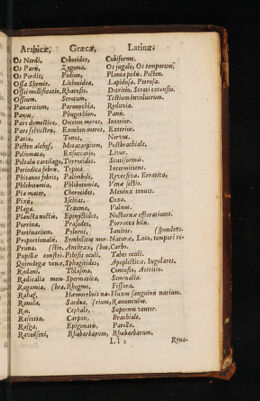 Arabicæ, Græcæ, Latinæ.
Os Nerdi, Cyboides, Cubiforme.
Os Paris, Zygoma, Os jugale, Os temporum,
Os Perdit, Podion, Planta pedis. Pecten.
Ossa Shemie, Lithoeidea, Lapidosa, Petrosa.
Ossei mollificatio, Rhatosis, Distritio, Scroti extensio.
Osseum, Scrotum, Testium involucrum.
Panaritium, Paronychia, Reduvia.
Panus, Phygethlon, Panis.
Pars domestica, Oiceion meros, Interior.
Pars sylvestris, Exoben meros, Exterior.
Patin, Tonos, Nervus.
Pecten alchef, Metacarpium, Postbrachiale.
Pelionata, Exsuccatio, Livor.
Pelzaln cartilago, Thyroeides, Scutiformis.
Periodica febris, Typica, Intermittens.
Phisanos febris, Palimbole, Reversina, Erratica.
Phlebotomia, Phlebotomia, Venæ sectio.
Pia mater, Choroides, Meninx tenuis.
Pixis, Ischias, Coxa.
Plaga, Trauma, Vulnus.
Planeta noctis, Epinyctides, Nocturnæ efflorationes.
Porrina, Prasodes, Porracea bilis.
Portinarium, Pyloros, Janitor.
Proportionalis, Symbolicus mor- Naturæ, Loco, tempori re-
Pruna, Anthrax, Carbo.
Pupillæ constri- Pthisis oculi, Tabes oculi.
Quindega venæ, Sphagitides, Apoplecticæ, Jugulares.
Radani, Thlasma, Contusio, Attritio.
Radicalia mem- Spermatica, Seminalia.
Ragamia, Rhogme, Fissura.
Ranula, Ranunculus.
Ras, Cephale, Supremus venter.
Rascetta, Carpos, Brachiale.
Rasga, Epigonatis, Patella.
Ravedsceni, Rhabarbarum, Rhabarbarum.
Ll 2 Rena-